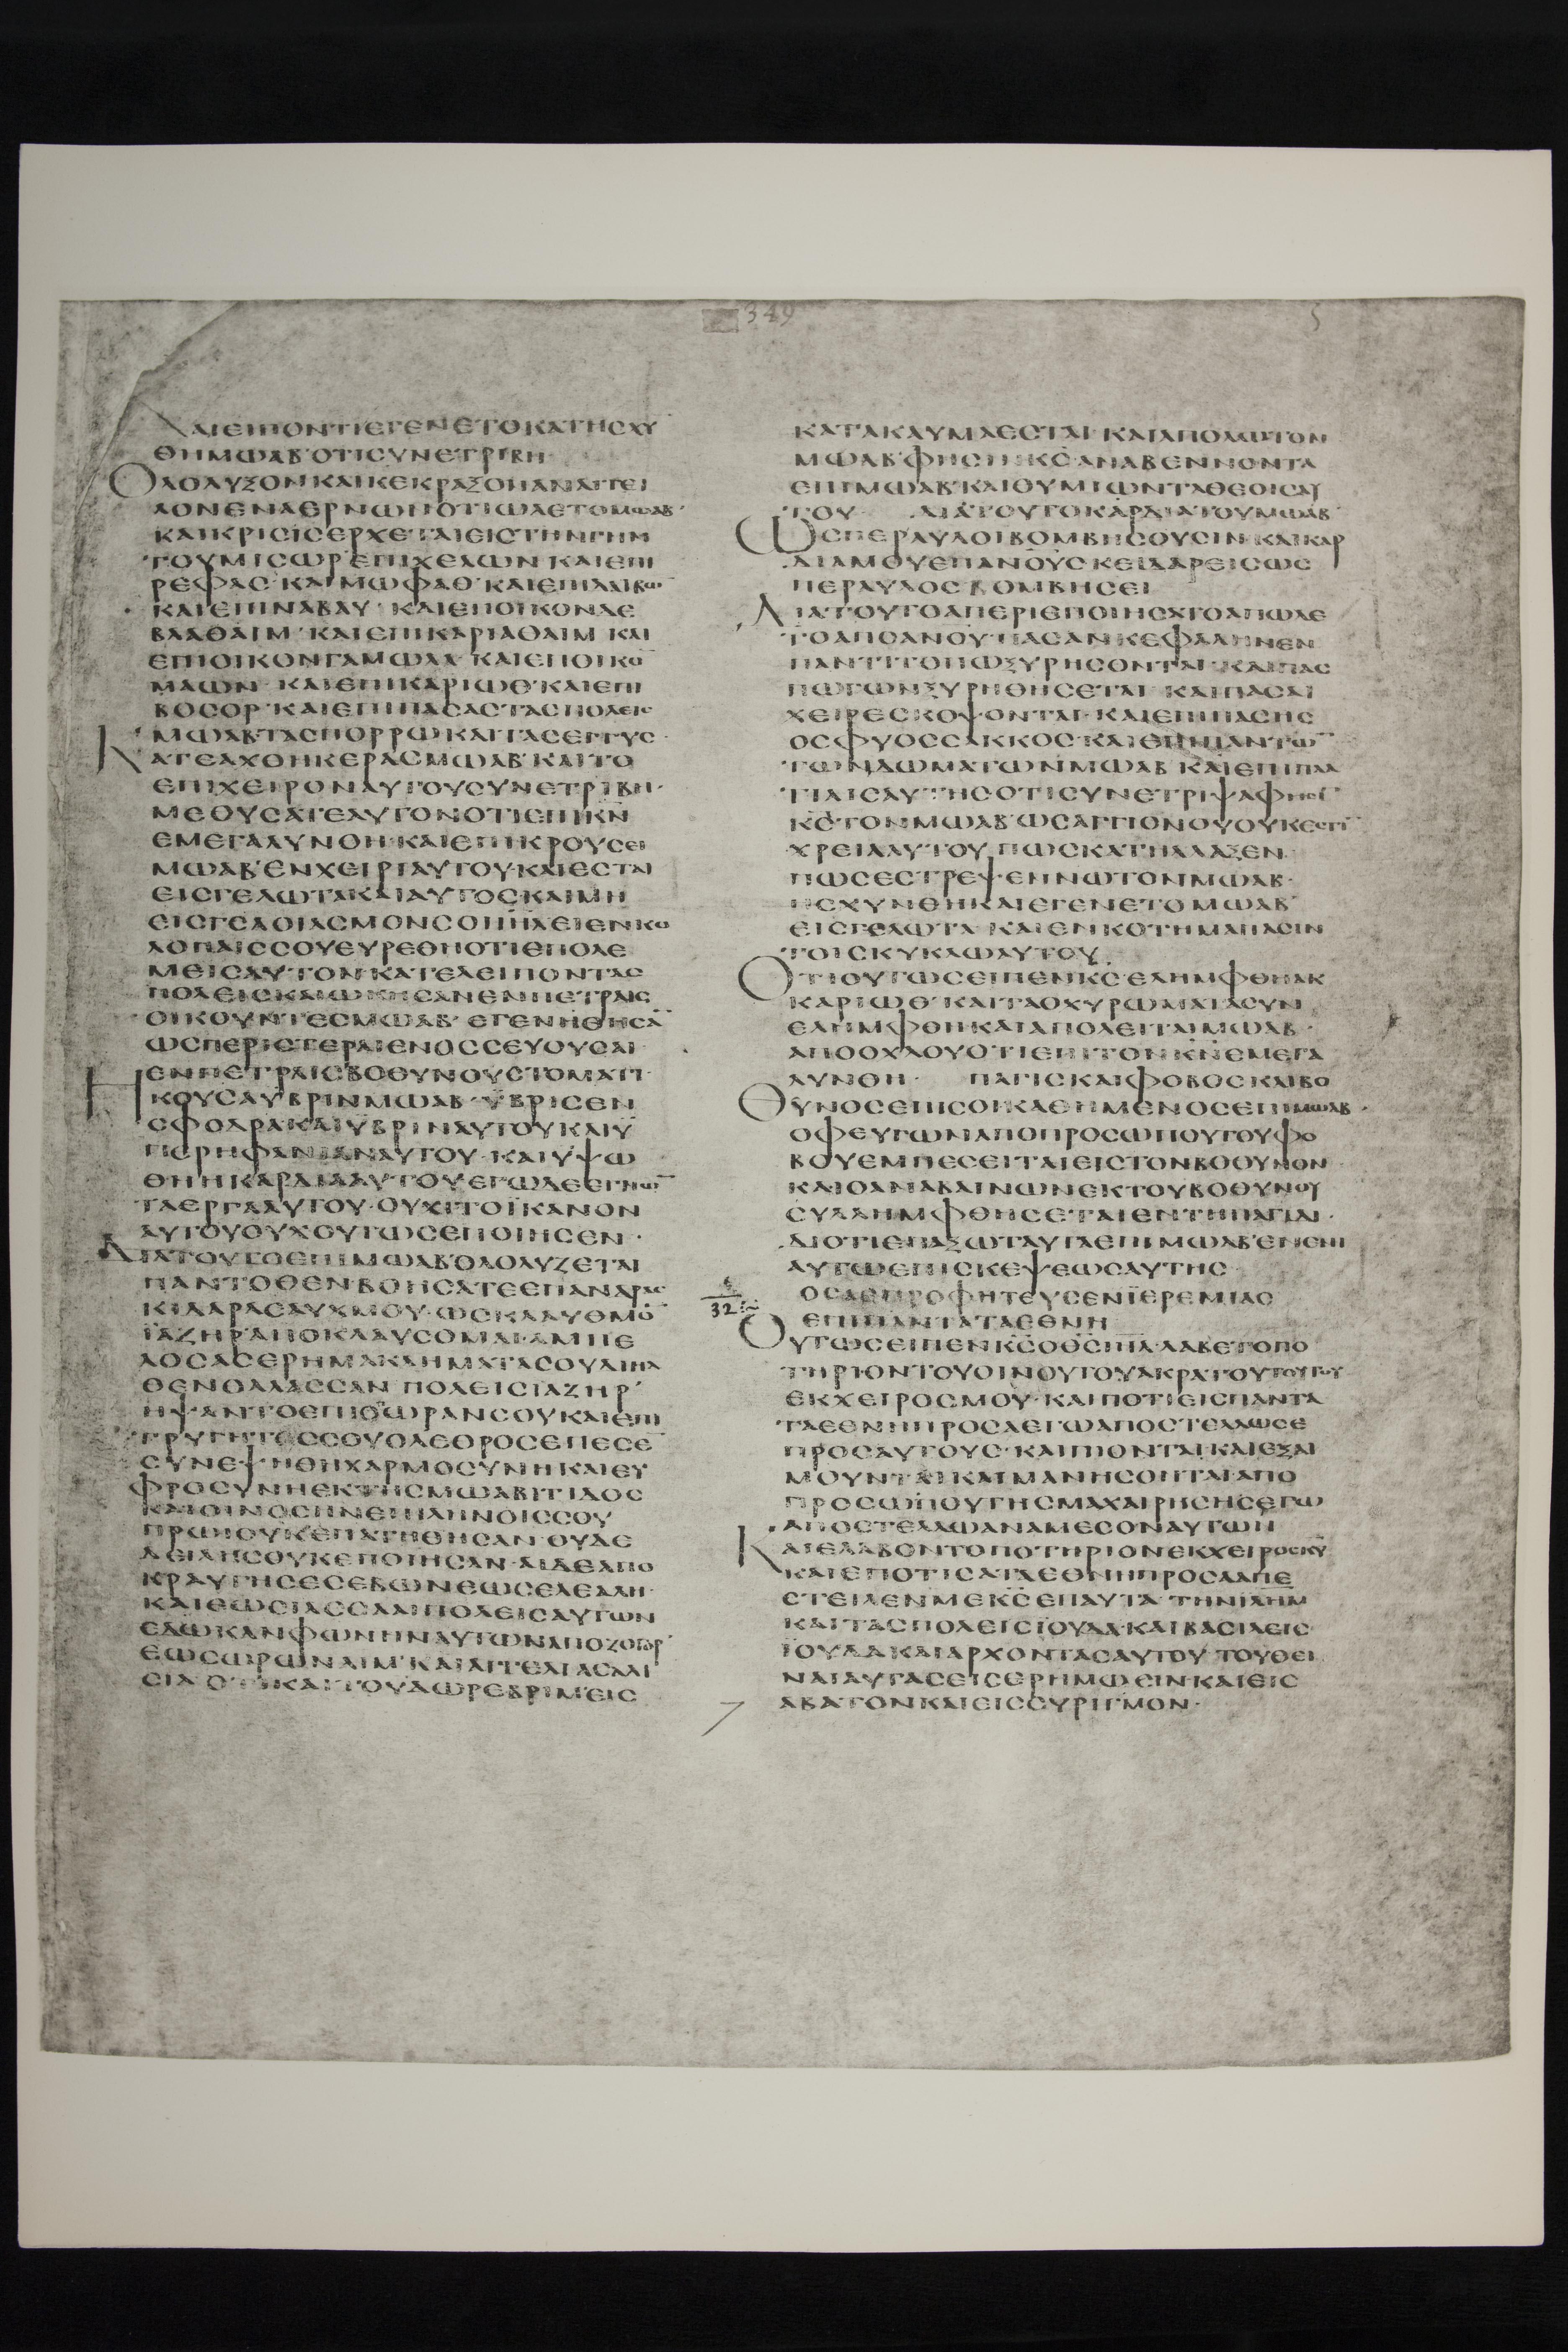 349
ΚΑΙΕΙΠΟΝΤΙΕΓΕΝΕΤΟΚΑΤΗСΧΥ
ΘΗΜΩΑΒ·ΟΤΙСΥΝΕΤΡΙΒΗ
ΟΛΟΛΥΞΟΝΚΑΙΚΕΚΡΑΞΟΝΑΝΑΓΓΕΙ
ΛΟΝΕΝΑΕΡΝΩΝΟΤΙΩΛΕΤΟΜΩΑΒ·
ΚΑΙΚΡΙСΙСΕΡΧΕΤΑΙΕΙСΤΗΝΓΗΝ
ΤΟΥΜΙСΩΡ·ΕΠΙΧΕΛΩΝ ΚΑΙΕΠΙ
ΡΕΦΑС·ΚΑΙΜΩΦΑΘ·ΚΑΙΕΠΙΔΑΙΒΩ̅
ΚΑΙΕΠΙΝΑΒΑΥ·ΚΑΙΕΠΟΙΚΟΝΔΕ
ΒΛΑΘΑΙΜ·ΚΑΙΕΠΙΚΑΡΙΑΘΑΙΜ ΚΑΙ
ΕΠΙΟΙΚΟΝΓΑΜΩΛΑ·ΚΑΙΕΠΟΙΚΟ̅
ΜΑΩΝ·ΚΑΙΕΠΙΚΑΡΙΩΘ·ΚΑΙΕΠΙ
ΒΟСΟΡ·ΚΑΙΕΠΙΠΑСΑСΤΑСΠΟΛΕΙС
ΜΩΑΒΤΑСΠΟΡΡΩΚΑΙΤΑСΕΓΓΥС·
ΚΑΤΕΑΧΘΗΚΕΡΑСΜΩΑΒ·ΚΑΙΤΟ
ΕΠΙΧΕΙΡΟΝΑΥΤΟΥСΥΝΕΤΡΙΒΗ·
ΜΕΘΥСΑΤΕΑΥΤΟΝΟΤΙΕΠΙΚ̅Ν̅
ΕΜΕΓΑΛΥΝΘΗ·ΚΑΙΕΠΙΚΡΟΥСΕΙ
ΜΩΑΒ·ΕΝΧΕΙΡΙΑΥΤΟΥ·ΚΑΙΕСΤΑΙ
ΕΙСΓΕΛΩΤΑΚΑΙΑΥΤΟС·ΚΑΙΜΗ
ΕΙСΓΕΛΟΙΑСΜΟΝСΟΙΗΝΕΙΕΝΚΛΟ
ΛΟΠΑΙССΟΥΕΥΡΕΘΗΟΤΙΕΠΟΛΕ
ΜΕΙСΑΥΤΟΝ·ΚΑΤΕΛΕΙΠΟΝΤΑС
ΠΟΛΕΙСΚΑΙΩΚΗСΑΝΕΝΠΕΤΡΑΙС
ΟΙΚΟΥΝΤΕСΜΩΑΒ·ΕΓΕΝΗΘΗСΑ̅
ΩСΠΕΡΙСΤΕΡΑΙΕΝΟССΕΥΟΥСΑΙ
ΕΝΠΕΤΡΑΙСΒΟΘΥΝΟΥСΤΟΜΑΤΙ·
ΗΚΟΥСΑΥΒΡΙΝΜΩΑΒ·ΥΒΡΙСΕΝ
СΦΟΔΡΑΚΑΙΥΒΡΙΝΑΥΤΟΥΚΑΙΥ
ΠΕΡΗΦΑΝΙΑΝΑΥΤΟΥ·ΚΑΙΥΨΩ
ΘΗΗΚΑΡΔΙΑΑΥΤΟΥΕΓΩΔΕΕΓΝΩ̅
ΤΑΕΡΓΑΑΥΤΟΥ·ΟΥΧΙΤΟΪΚΑΝΟΝ
ΑΥΤΟΥΟΥΧΟΥΤΩСΕΠΟΙΗСΕΝ·
ΔΙΑΤΟΥΤΟΕΠΙΜΩΑΒ·ΟΛΟΛΥΖΕΤΑΙ
ΠΑΝΤΟΘΕΝ·ΒΟΗСΑΤΕΕΠΑΝΔΡΑС
ΚΙΔΑΡΑСΑΥΧΜΟΥ·ΩСΚΛΑΥΘΜΟ̅
ΪΑΖΗΡ·ΑΠΟΚΛΑΥСΟΜΑΙ·ΑΜΠΕ
ΛΟСΑСΕΡΗΜΑΚΛΗΜΑΤΑСΟΥΔΙΗΛ
ΘΕΝΘΑΛΑССΑΝ·ΠΟΛΕΙСΙΑΖΗΡ·
ΗΨΑΝΤΟΕΠΙΟΠΩΡΑΝСΟΥΚΑΙΕΠΙ
ΤΡΥΓΗΤΑСΣΟΥΟΛΕΘΡΟСΕΠΕСΕ̅
СΥΝΕΨΗΘΗΧΑΡΜΟСΥΝΗΚΑΙΕΥ
ΦΡΟСΥΝΗΕΚΤΗСΜΩΑΒΙΤΙΔΟС
ΚΑΙΟΙΝΟСΗΝΕΠΙΛΗΝΟΙССΟΥ
ΠΡΩΙΟΥΚΕΠΑΤΗΘΗСΑΝ·ΟΥΔΕ
ΔΕΙΛΗСΟΥΚΕΠΟΙΗСΑΝ·ΑΙΔΕΑΠΟ
ΚΡΑΥΓΗСΕСΕΒΩΝΕΩСΕΛΕΑΛΗ·
ΚΑΙΕΩСΙΑССΑΑΙΠΟΛΕΙСΑΥΤΩΝ
ΕΔΩΚΑΝΦΩΝΗΝΑΥΤΩΝΑΠΟΖΟΓΟΡ
ΕΩСΩΡΩΝΑΙΜ·ΚΑΙΑΓΓΕΛΙΑСΑΛΙ
СΙΑ ΟΤΙΚΑΙΤΟΥΔΩΡΕΒΡΙΜΕΙС
ΚΑΤΑΚΑΥΜΑΕСΤΑΙ·ΚΑΙΑΠΟΛΩΤΟΝ
ΜΩΑΒ·ΦΗСΙΝΚ̅С̅·ΑΝΑΒΕΝΝΟΝΤΑ
ΕΠΙΜΩΑΒ·ΚΑΙΘΥΜΙΩΝΤΑΘΕΟΙСΑΥ
ΤΟΥ· ΔΙΑΤΟΥΤΟΚΑΡΔΙΑΤΟΥΜΩΑΒ·
ΩСΠΕΡΑΥΛΟΙΒΟΜΒΗСΟΥСΙΝ·ΚΑΙΚΑΡ
ΔΙΑΜΟΥΕΠΑΝΟΥСΚΕΙΔΑΡΕΙСΩС
ΠΕΡΑΥΛΟСΒΟΜΒΗСΕΙ
ΔΙΑΤΟΥΤΟΑΠΕΡΙΕΠΟΙΗСΑΤΟΑΠΩΛΕ
ΤΟΑΠΟΑΝΟΥ·ΠΑСΑΝΚΕΦΑΛΗΝΕΝ
ΠΑΝΤΙΤΟΠΩΞΥΡΗСΟΝΤΑΙ·ΚΑΙΠΑС
ΠΩΓΩΝΞΥΡΗΘΗСΕΤΑΙ·ΚΑΙΠΑСΑΙ
ΧΕΙΡΕСΚΟΨΟΝΤΑΙ·ΚΑΙΕΠΙΠΑСΗС
ΟСΦΥΟССΑΚΚΟС·ΚΑΙΕΠΙΠΑΝΤΩ̅
ΤΩΝΔΩΜΑΤΩΝΜΩΑΒ·ΚΑΙΕΠΙΠΛΑ
ΤΙΑΙСΑΥΤΗСΟΤΙСΥΝΕΤΡΙΨΑΦΗСΙ̅
Κ̅С̅·ΤΟΝΜΩΑΒ·ΩСΑΓΓΙΟΝΟΥΟΥΚΕСΤΙ̅
ΧΡΕΙΑΑΥΤΟΥ ΠΩСΚΑΤΗΛΛΑΞΕΝ·
ΠΩСΕСΤΡΕΨΕΝΝΩΤΟΝΜΩΑΒ·
ΗСΧΥΝΘΗΚΑΙΕΓΕΝΕΤΟΜΩΑΒ·
ΕΙСΓΕΛΩΤΑ·ΚΑΙΕΝΚΟΤΗΜΑΠΑСΙΝ
ΤΟΙСΚΥΚΛΩΑΥΤΟΥ
ΟΤΙΟΥΤΩСΕΙΠΕΝΚ̅С̅·ΕΛΗΜΦΘΗΑΚ
ΚΑΡΙΩΘ·ΚΑΙΤΑΟΧΥΡΩΜΑΤΑСΥΝ
ΕΛΗΜΦΘΗ·ΚΑΙΑΠΟΛΕΙΤΑΙΜΩΑΒ·
ΑΠΟΟΧΛΟΥΟΤΙΕΠΙΤΟΝΚ̅Ν̅ΕΜΕΓΑ
ΛΥΝΘΗ· ΠΑΓΙСΚΑΙΦΟΒΟСΚΑΙΒΟ
ΘΥΝΟСΕΠΙСΟΙΚΑΘΗΜΕΝΟСΕΠΙΜΩΑΒ·
ΟΦΕΥΓΩΝΑΠΟΠΡΟСΩΠΟΥΤΟΥΦΟ
ΒΟΥΕΜΠΕСΕΙΤΑΙΕΙСΤΟΝΒΟΘΥΝΟΝ
ΚΑΙΟΑΝΑΒΑΙΝΩΝΕΚΤΟΥΒΟΘΥΝΟΥ
СΥΛΛΗΜΦΘΗСΕΤΑΙΕΝΤΗΠΑΓΙΔΙ·
ΔΙΟΤΙΕΠΑΞΩΤΑΥΤΑΕΠΙΜΩΑΒ·ΕΝΕΝΙ
ΑΥΤΩΕΠΙСΚΕΨΕΩСΑΥΤΗС·
32
ΟСΑΕΠΡΟΦΗΤΕΥСΕΝΪΕΡΕΜΙΑС
ΕΠΙΠΑΝΤΑΤΑΕΘΝΗ
ΟΥΤΩСΕΙΠΕΝΚ̅С̅Ο̅Θ̅С̅Ι̅Η̅Λ̅·ΛΑΒΕΤΟΠΟ
ΤΗΡΙΟΝΤΟΥΟΙΝΟΥΤΟΥΑΚΡΑΤΟΥΤΟΥΤΟΥ
ΕΚΧΕΙΡΟСΜΟΥ·ΚΑΙΠΟΤΙΕΙСΠΑΝΤΑ
ΤΑΕΘΝΗΠΡΟСΑΕΓΩΑΠΟСΤΕΛΛΩСΕ
ΠΡΟСΑΥΤΟΥС·ΚΑΙΠΙΟΝΤΑΙ·ΚΑΙΕΞΑΙ
ΜΟΥΝΤΑΙΚΑΙΜΑΝΗСΟΝΤΑΙΑΠΟ
ΠΡΟСΩΠΟΥΤΗСΜΑΧΑΙΡΗСΗСΕΓΩ
ΑΠΟСΤΕΛΛΩΑΝΑΜΕСΟΝΑΥΤΩΝ
ΚΑΙΕΛΑΒΟΝΤΟΠΟΤΗΡΙΟΝΕΚΧΕΙΡΟСΚ̅Υ̅
ΚΑΙΕΠΟΤΙСΑΤΑΕΘΝΗΠΡΟСΑΑΠΕ
СΤΕΙΛΕΝΜΕΚ̅С̅ΕΠΑΥΤΑ·ΤΗΝΙ̅Λ̅Η̅Μ̅
ΚΑΙΤΑСΠΟΛΕΙСΪΟΥΔΑ·ΚΑΙΒΑСΙΛΕΙС
ΪΟΥΔΑΚΑΙΑΡΧΟΝΤΑСΑΥΤΟΥ·ΤΟΥΘΕΙ
ΝΑΙΑΥΤΑСΕΙСΕΡΗΜΩСΙΝ·ΚΑΙΕΙС
ΑΒΑΤΟΝΚΑΙΕΙССΥΡΙΓΜΟΝ·